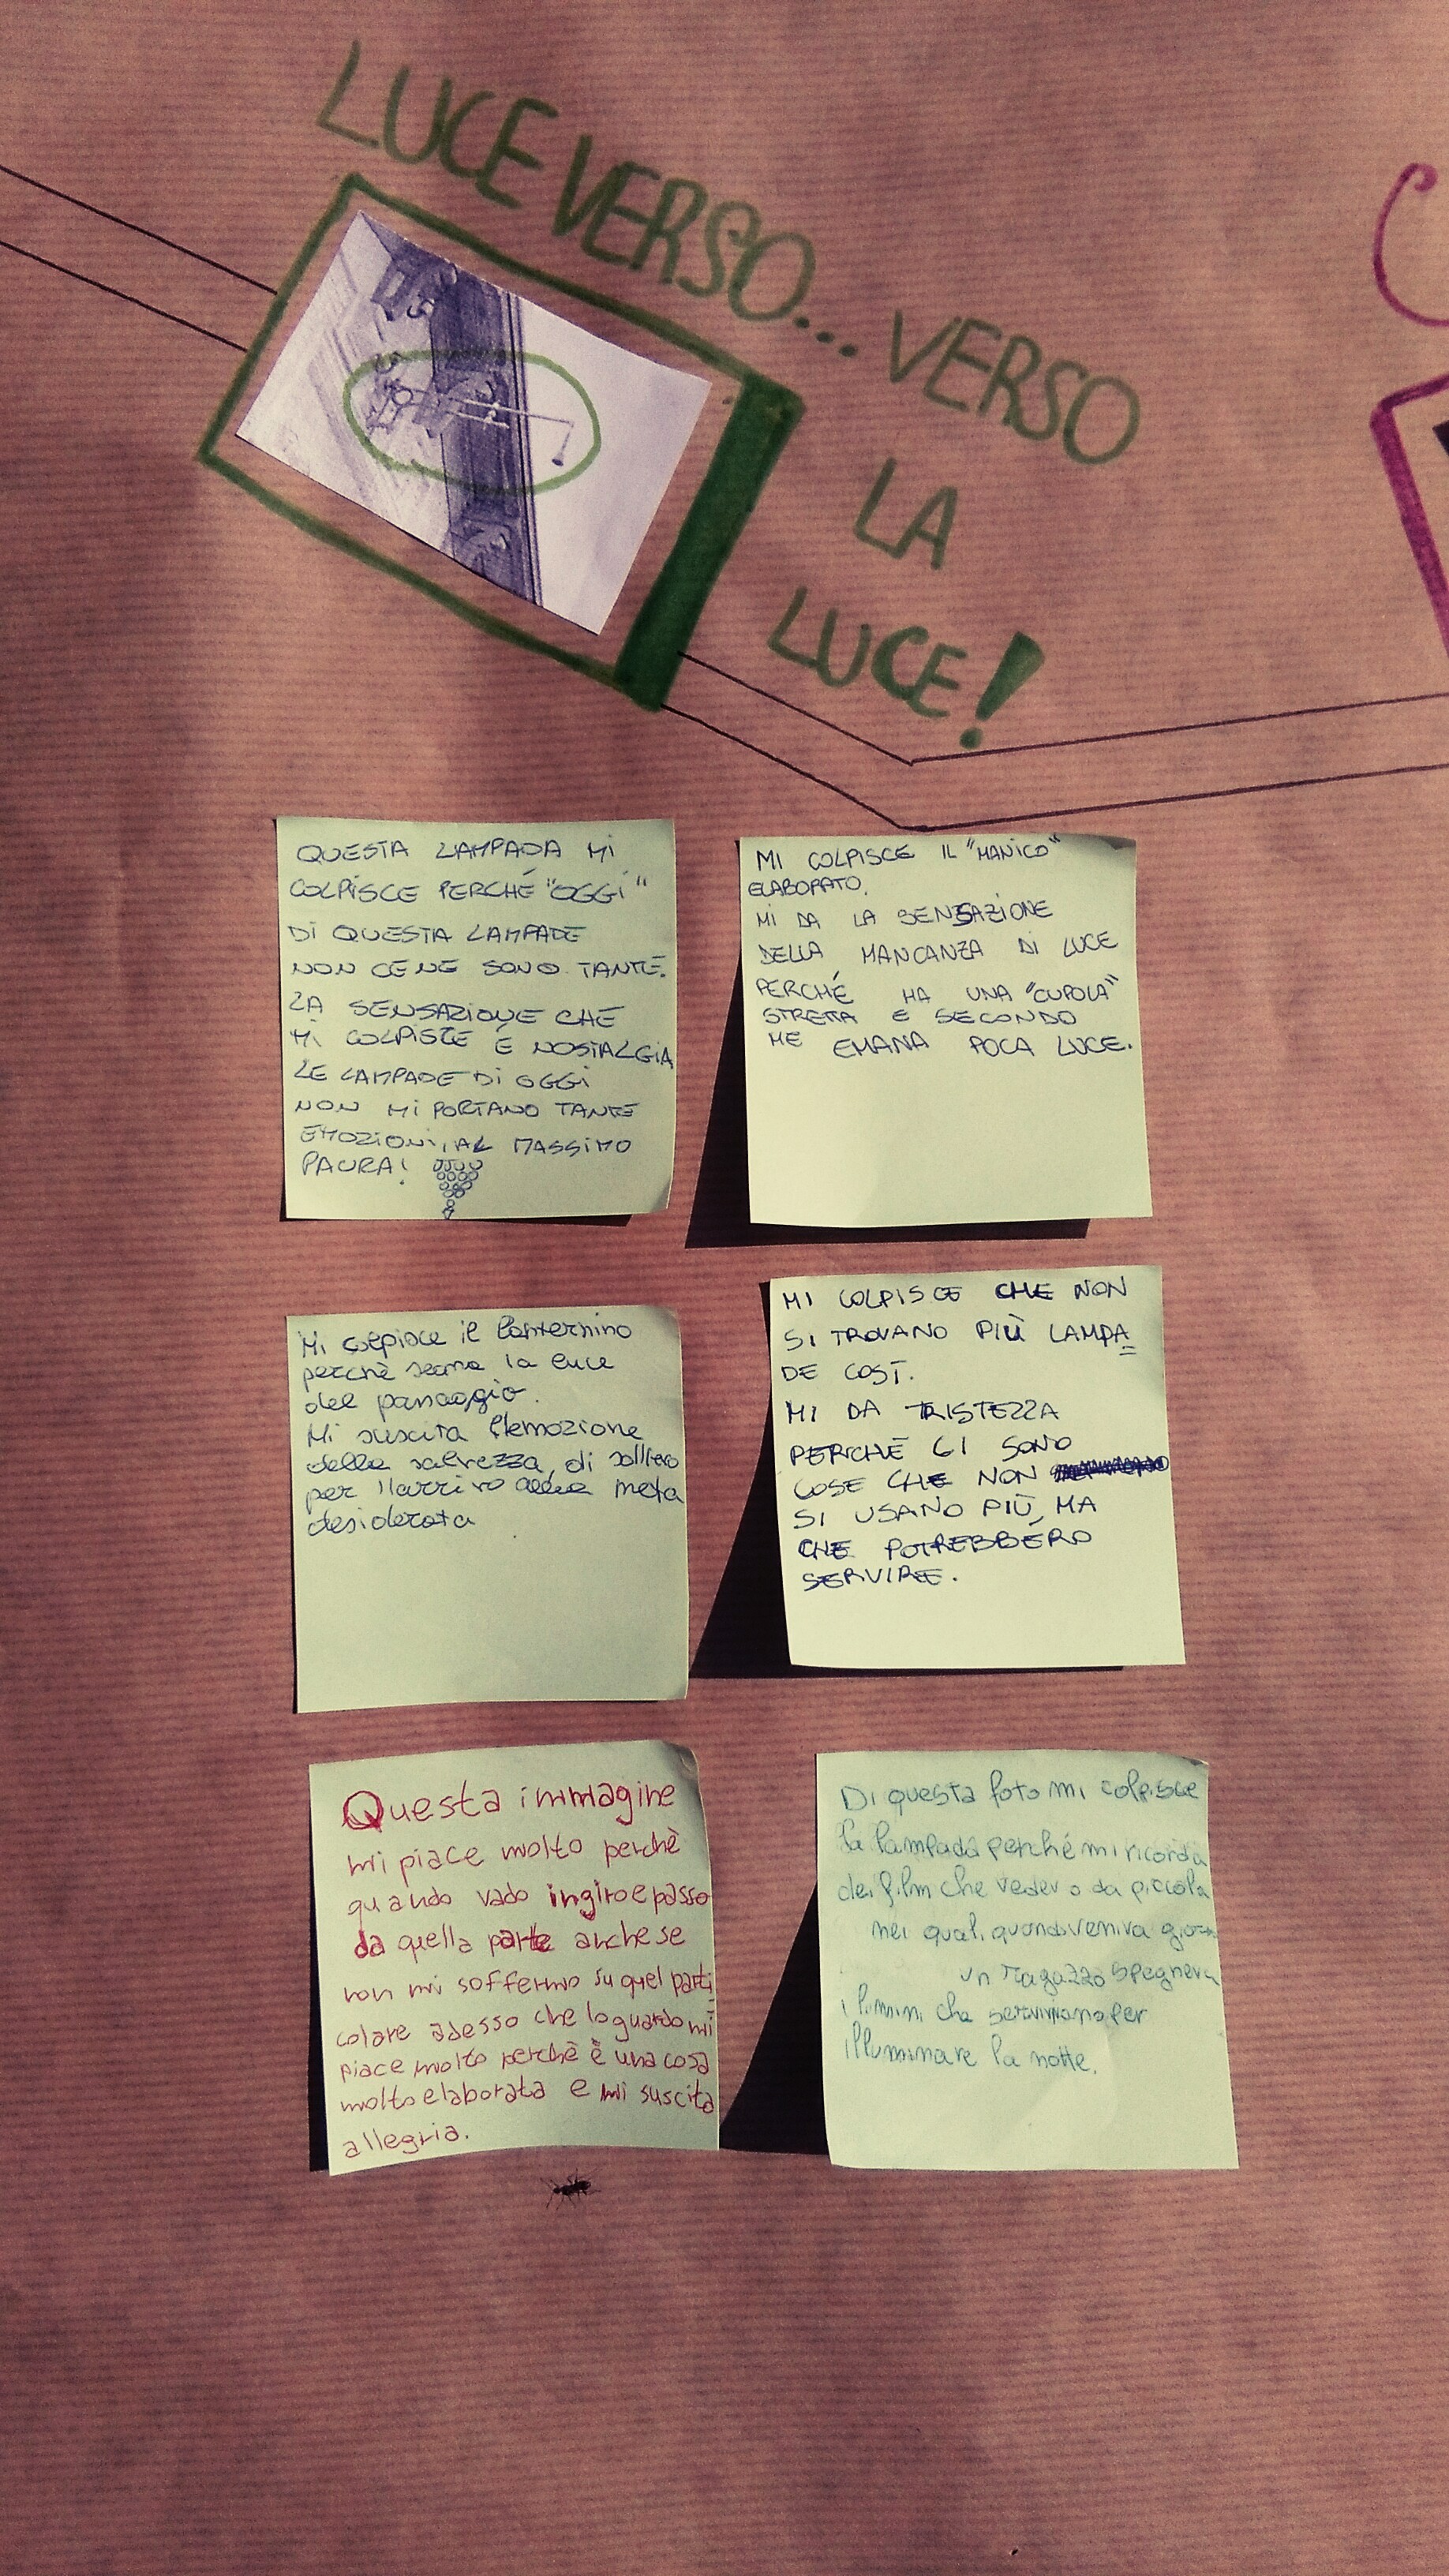 LUCE VERSO... VERSO
LA
LUCE!
QUESTA LAMPADA MI
COLPISCE PERCHÉ "OGGI"
DI QUESTA LAMPADE
NON CE NE SONO TANTE.
LA SENSAZIONE CHE
MI COLPISCE É NOSTALGIA
LE LAMPADE DI OGGI
NON MI PORTANO TANTE
EMOZIONI, AL MASSIMO
PAURA!
MI COLPISCE IL "MANICO"
ELABORATO.
MI DA LA SENSAZIONE
DELLA MANCANZA DI LUCE
PERCHÉ HA UNA "CUPOLA"
STRETTA E SECONDO
ME EMANA POCA LUCE.
Mi colpisce il lanternino
perchè segna la luce
del passaggio.
Mi suscita l'emozione
della salvezza, di sollievo
per l'arrivo alla meta
desiderata
MI COLPISCE CHE NON
SI TROVANO PIÙ LAMPA
DE COSÌ.
MI DA TRISTEZZA
PERCHÉ CI SONO
COSE CHE NON
SI USANO PIÙ, MA
CHE POTREBBERO
SERVIRE.
Questa immagine
mi piace molto perchè
quando vado in giro e passo
da quella parte anche se
non mi soffermo su quel parti
colare adesso che lo guardo mi
piace molto perchè è una cosa
molto elaborata e mi suscita
allegria.
Di questa foto mi colpisce
la lampada perché mi ricorda
dei film che vedevo da piccola
nei quali quando veniva giorno
un ragazzo spegneva
i lumini che servivano per
illuminare la notte.